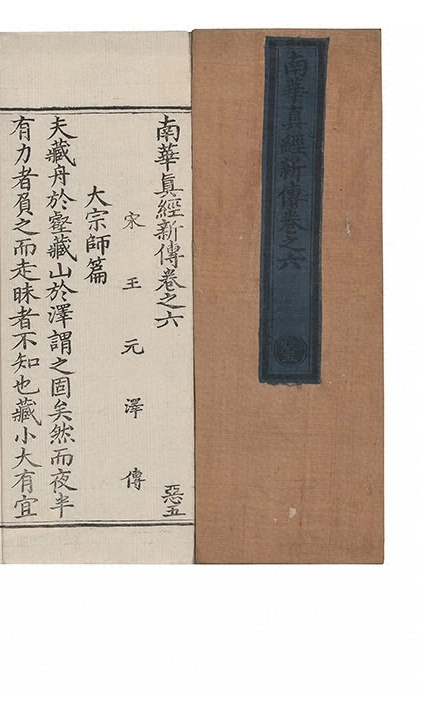 南華真經新傳卷之六
南華眞經新傳卷之六
惡五
宋王元澤傳
大宗師篇
夫藏舟於壑藏山於澤謂之固矣然而夜半
有力者負之而走昧者不知也藏小大有宜